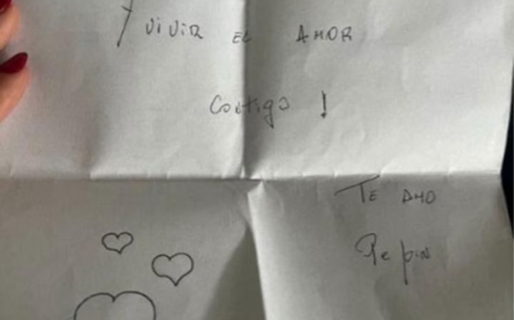 Y VIVIR EL AMOR
Contigo !
TE AMO
Pepin